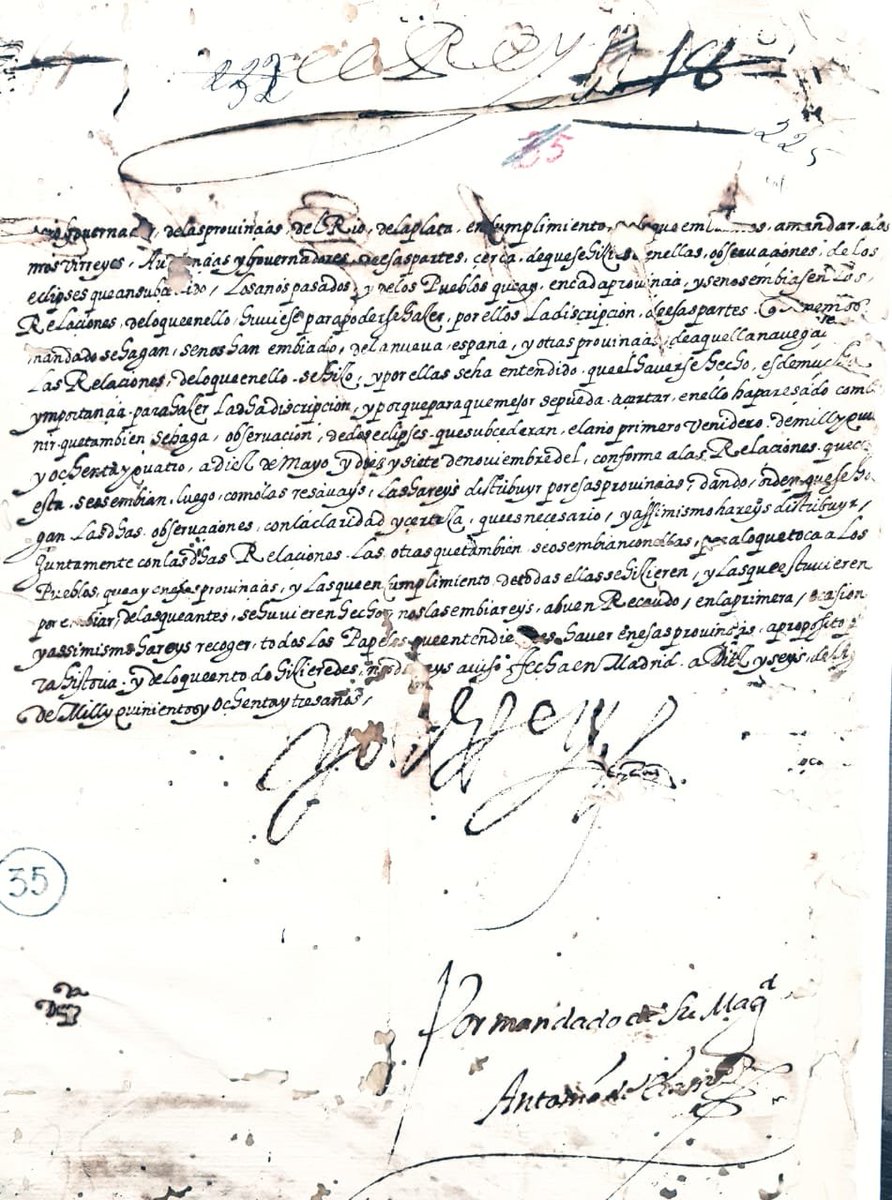 el Rey
18
225
35
governador, delas provinçias, del Rio, dela plata, en cumplimiento, que embiamos, a mandar, a los
nros virreyes, Audiençias y governadores, de esas partes, cerca, de que se hiziesen en ellas, observaçiones, de los
eclipses que an subçedido, los anos pasados, y de los Pueblos que ay, en cada provinçia, y se nos embiasen los,
Relaçiones, delo que en ello, huviese para poderse hazer, por ellos la discripçion, de esas partes
mandado se hagan, se nos han embiado, dela nueva, españa, y otras provinçias, de aquella navega
las Relaçiones, delo que en ello se hizo, y por ellas se ha entendido que el haverse hecho, es de mucha
ymportançia para hazer la dha discripçion, y porque para que mejor se pueda açertar, en ello ha paresçido combe
nir que tambien se haga, observaçion, de dos eclipses que subcederan, el año primero venidero de mill y qui
y ochenta y quatro, a diez de Mayo, y diez y siete de noviembre del, conforme a las Relaçiones que
esta se os embian, luego, como las resçivays, las hareys distribuyr por esas provinçias, dando, orden que se ha
gan las dhas observaçiones, con la claridad y certeza, que es necesario, y assimismo hareys distribuyr,
juntamente con las dhas Relaçiones las otras que tambien se os embian con ellas, para lo que toca a los
Pueblos, que ay en esas provinçias, y las que en cumplimiento de todas ellas se hizieren, y las que estuvieren
por embiar, de las que antes, se huvieren hecho, nos las embiareys, a buen Recaudo, en la primera, ocasion
y assimismo hareys recoger, todos los Papeles que entendieredes, haver en esas provinçias, a proposito
ra historia y delo que en to do hizieredes, nos dareys aviso fecha en Madrid a Diez y seys, de
de Mill y quinientos y Ochenta y tres años,
yo el Rey
35
Por mandado de Su Magd
Antonio de Erasso